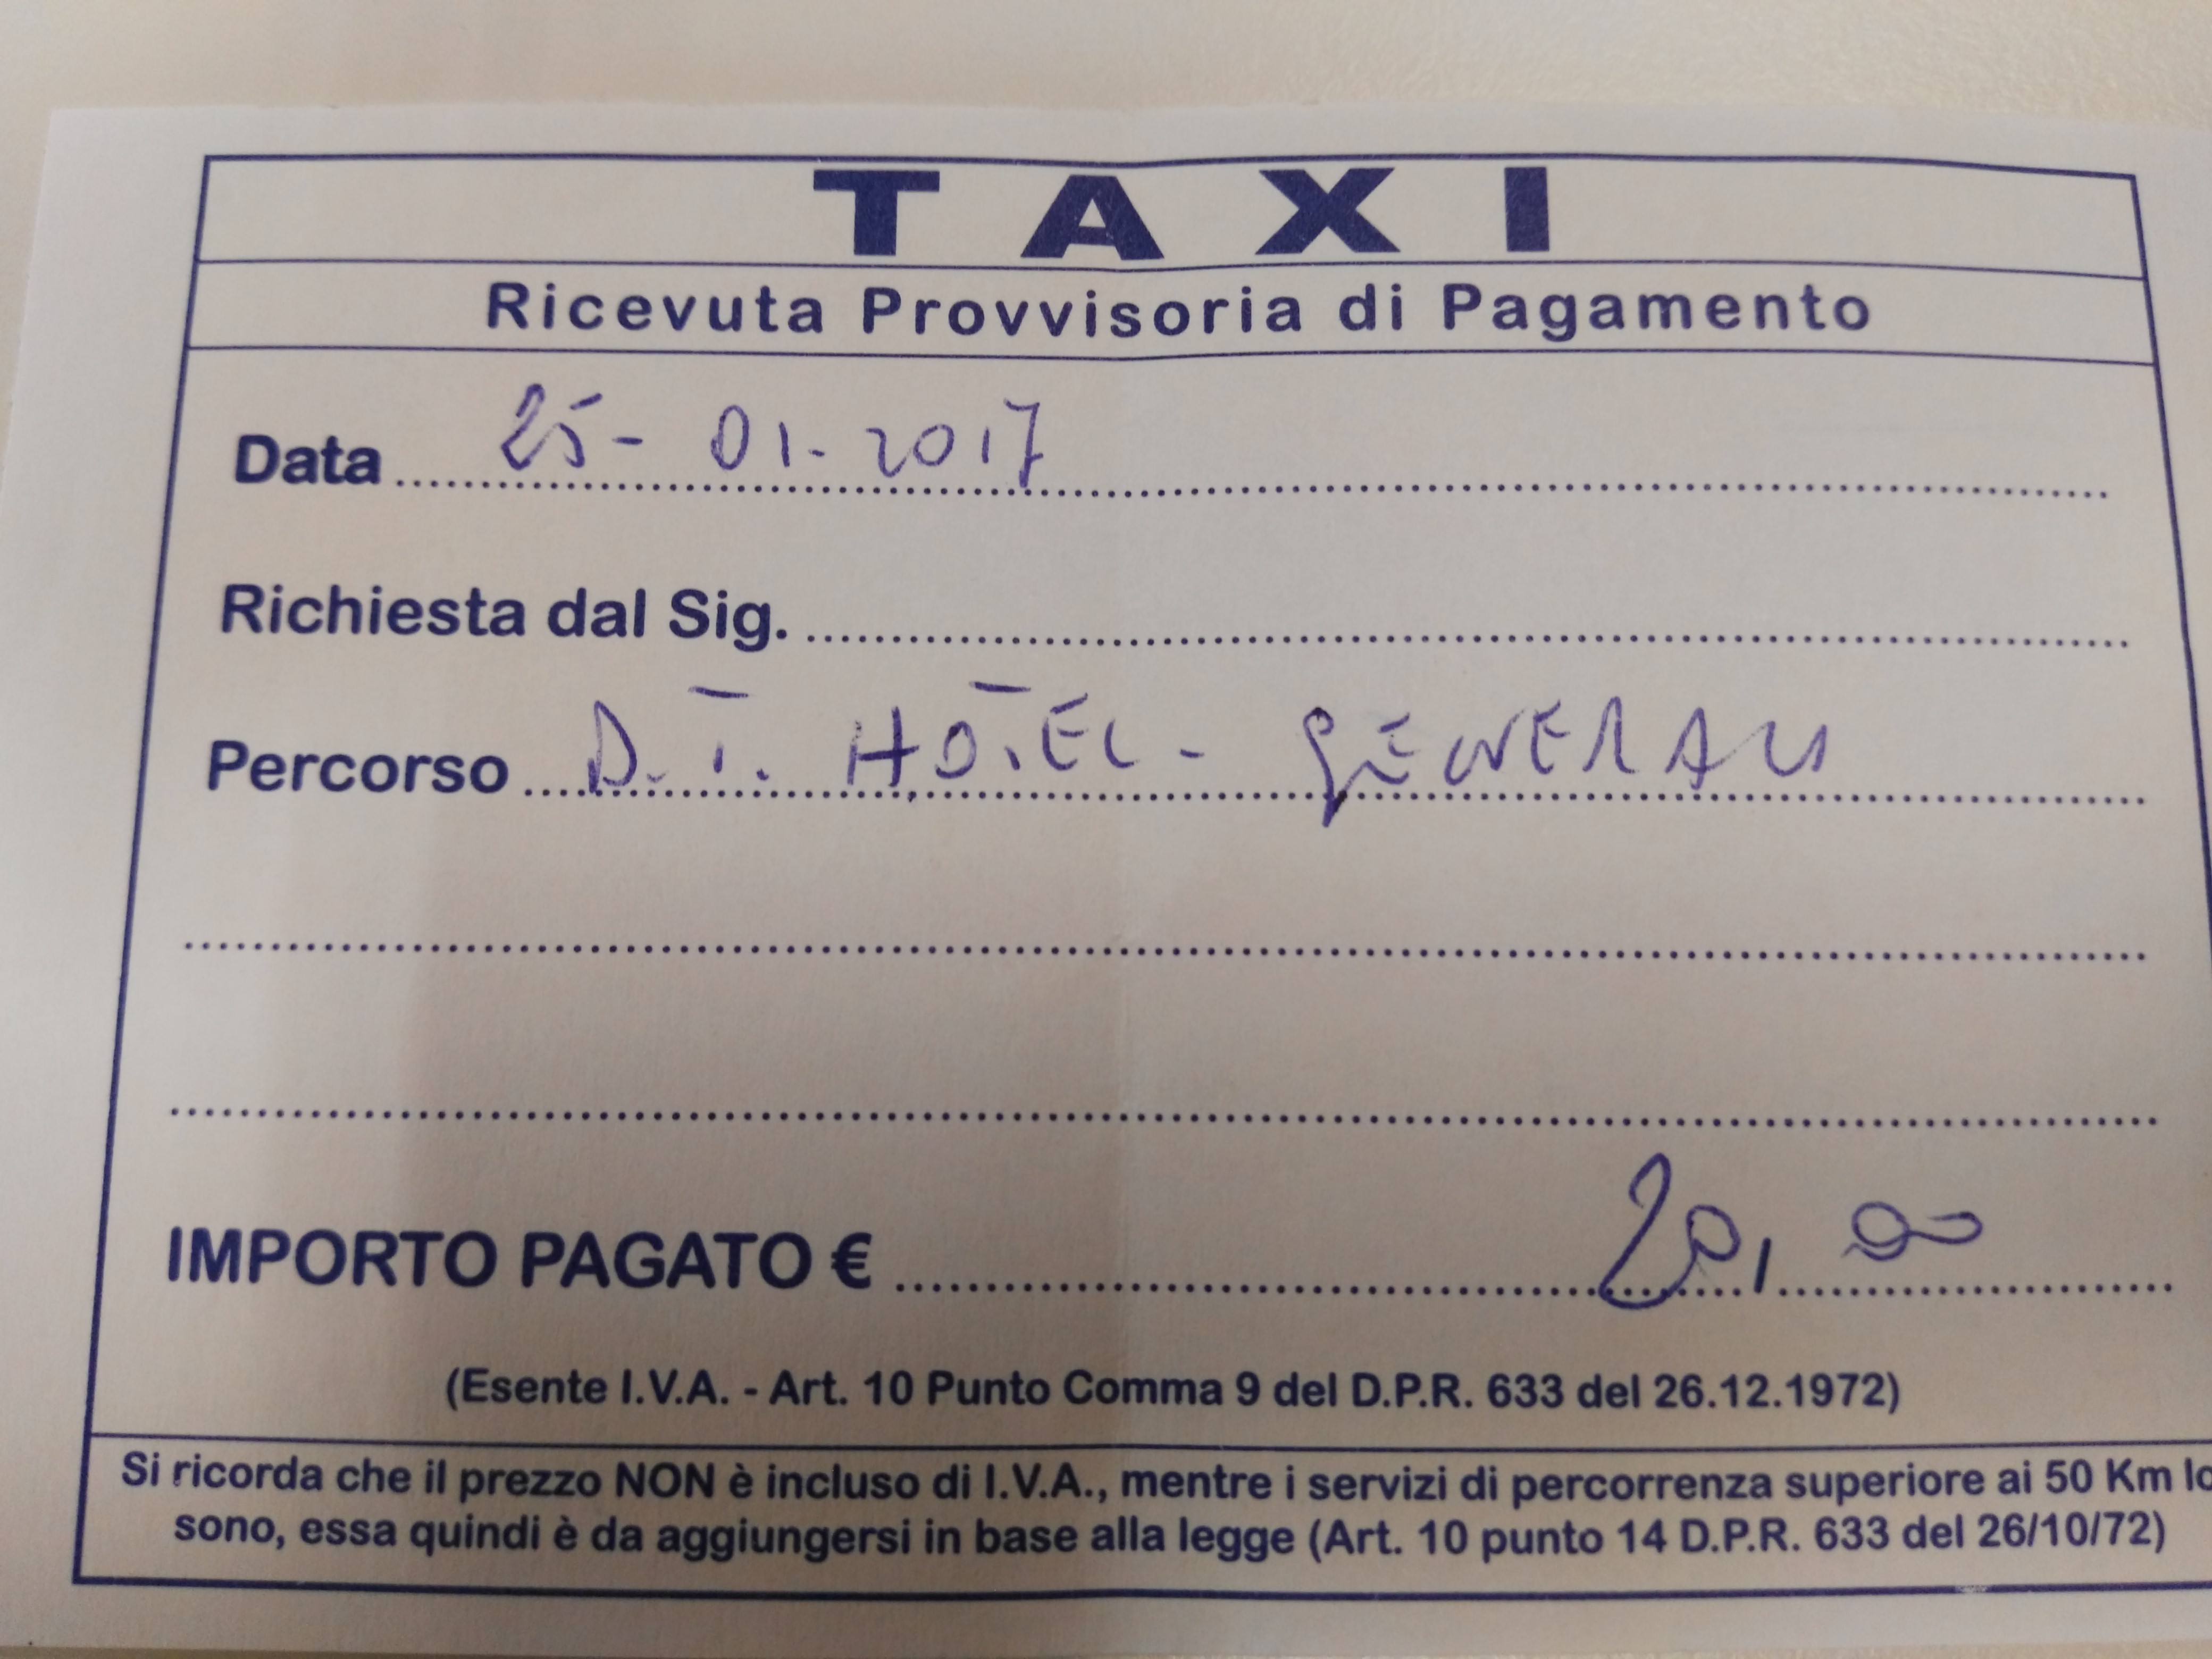 TAXI
Ricevuta Provvisoria di Pagamento
Data 25-01-2017
Richiesta dal Sig.
Percorso D.T. HOTEL - GENERALI
IMPORTO PAGATO € 20,00
(Esente I.V.A. - Art. 10 Punto Comma 9 del D.P.R. 633 del 26.12.1972)
Si ricorda che il prezzo NON è incluso di I.V.A., mentre i servizi di percorrenza superiore ai 50 Km lo
sono, essa quindi è da aggiungersi in base alla legge (Art. 10 punto 14 D.P.R. 633 del 26/10/72)